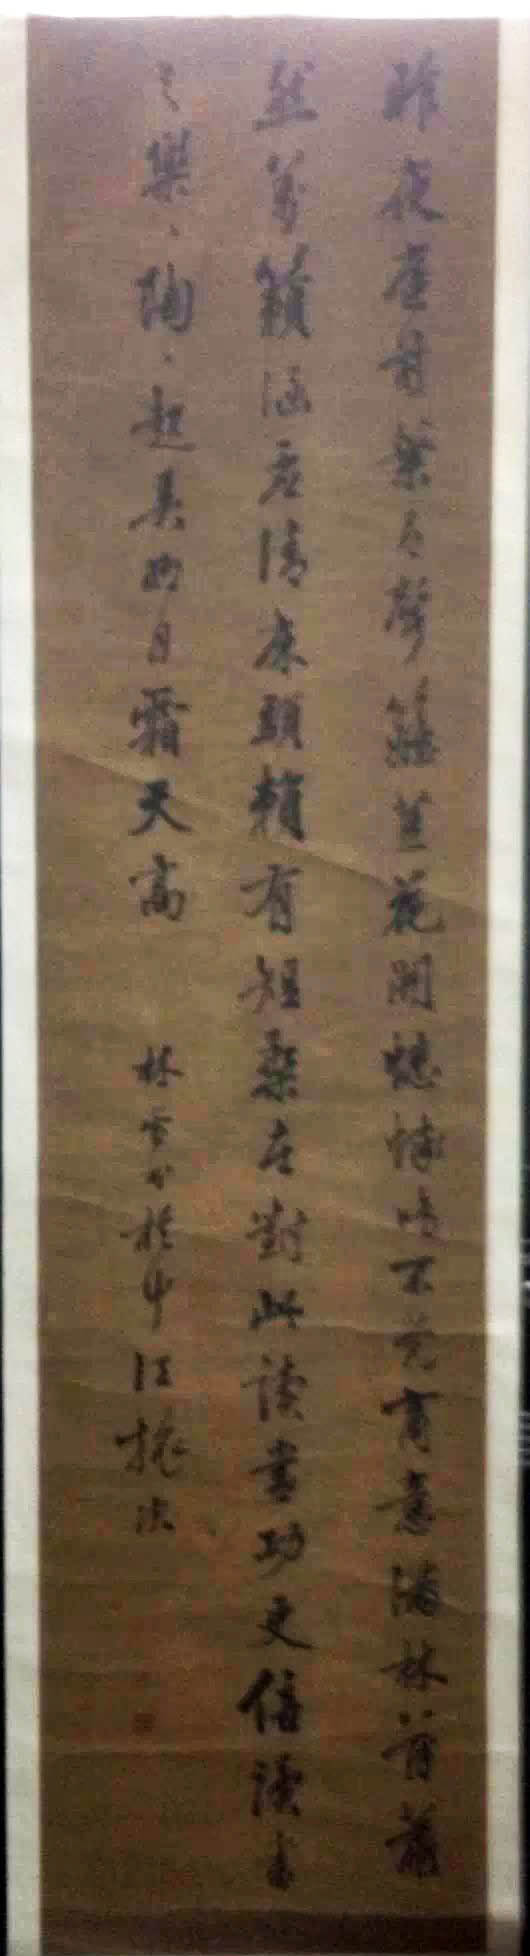 昨夜庭前葉有聲籬豆花開蟋蟀鳴不覺商意滿林薄蕭
然萬籟涵虛清床頭賴有短檠在對此讀書功更倍讀書
之樂樂陶陶起弄明日霜天高
林雪書於中江